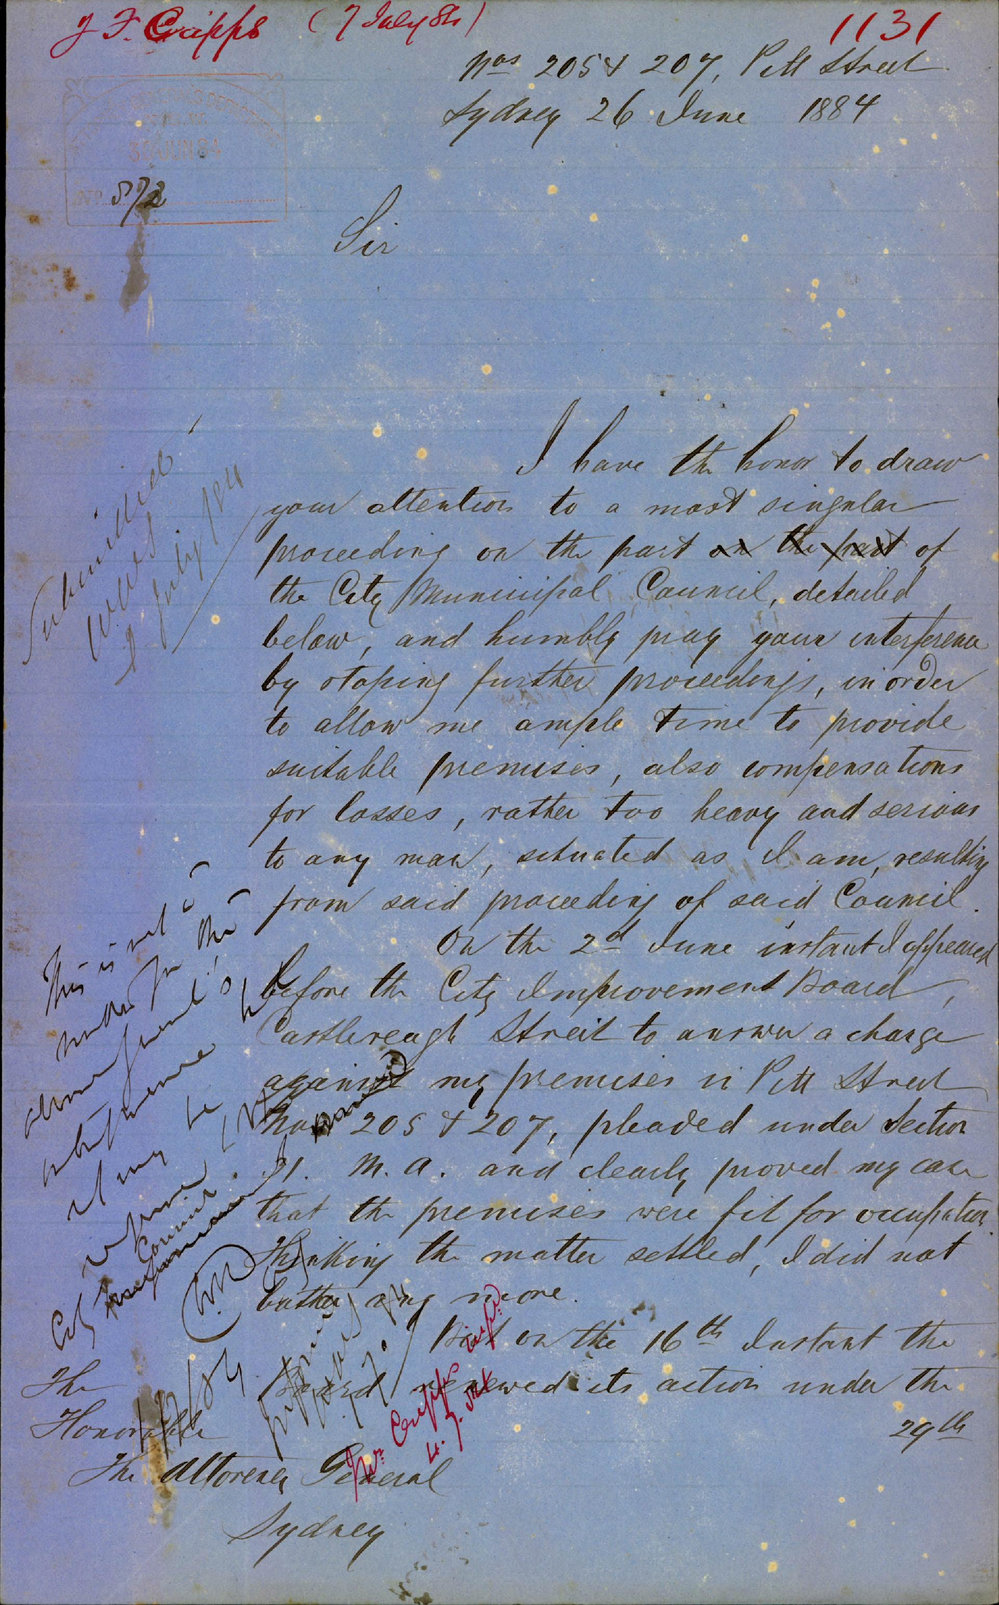 J F. Cripps (7 July 84)
1131
Nos 205 & 207, Pitt Street
Sydney 26 June 1884
30 JUN 84
No 572
Sir
I have the honor to draw
your attention to a most singular
proceeding on the part on the part of
the City Municipal Council, detailed
below, and humbly pray your interference
by stoping further proceedings, in order
to allow me ample time to provide
suitable premises, also compensations
for losses, rather too heavy and serious
to any man, situated as I am, resulting
from said proceeding of said Council.
On the 2d June instant I appeared
before the City Improvement Board,
Castlereagh Street to answer a charge
against my premises in Pitt Street
Nos 205 & 207, pleaded under Section
M. A. and clearly proved my case
that the premises were fit for occupation
Thinking the matter settled, I did not
bother any more.
But on the 16th Instant the
Board renewed its action under the
29th
The
Honorable
The Attorney General
Sydney
Submitted
July /84
This is not a
matter for the
Government's
interference
it may be
City Council
Mr Cripps infd.
4. 7. 84